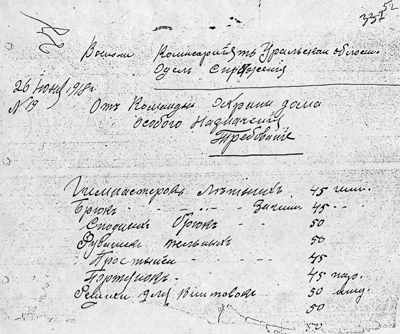 337 52
Воиони Комисариятъ Уральская области
Одел Снабжения
26 Июня 1918 г.
№ 19
Отъ Команды Охрани дома
особого Назначения
Требвание
Гимнастерокъ Лѣтнихъ 45 шт.
Брюкъ - - - 45 --
Сподних Брюкъ - - 50
Рубашек тельныхъ 50
Простыни - - 45
Портянокъ - - 45 пар.
Ремни для Винтовокъ 50 шту.
50
50